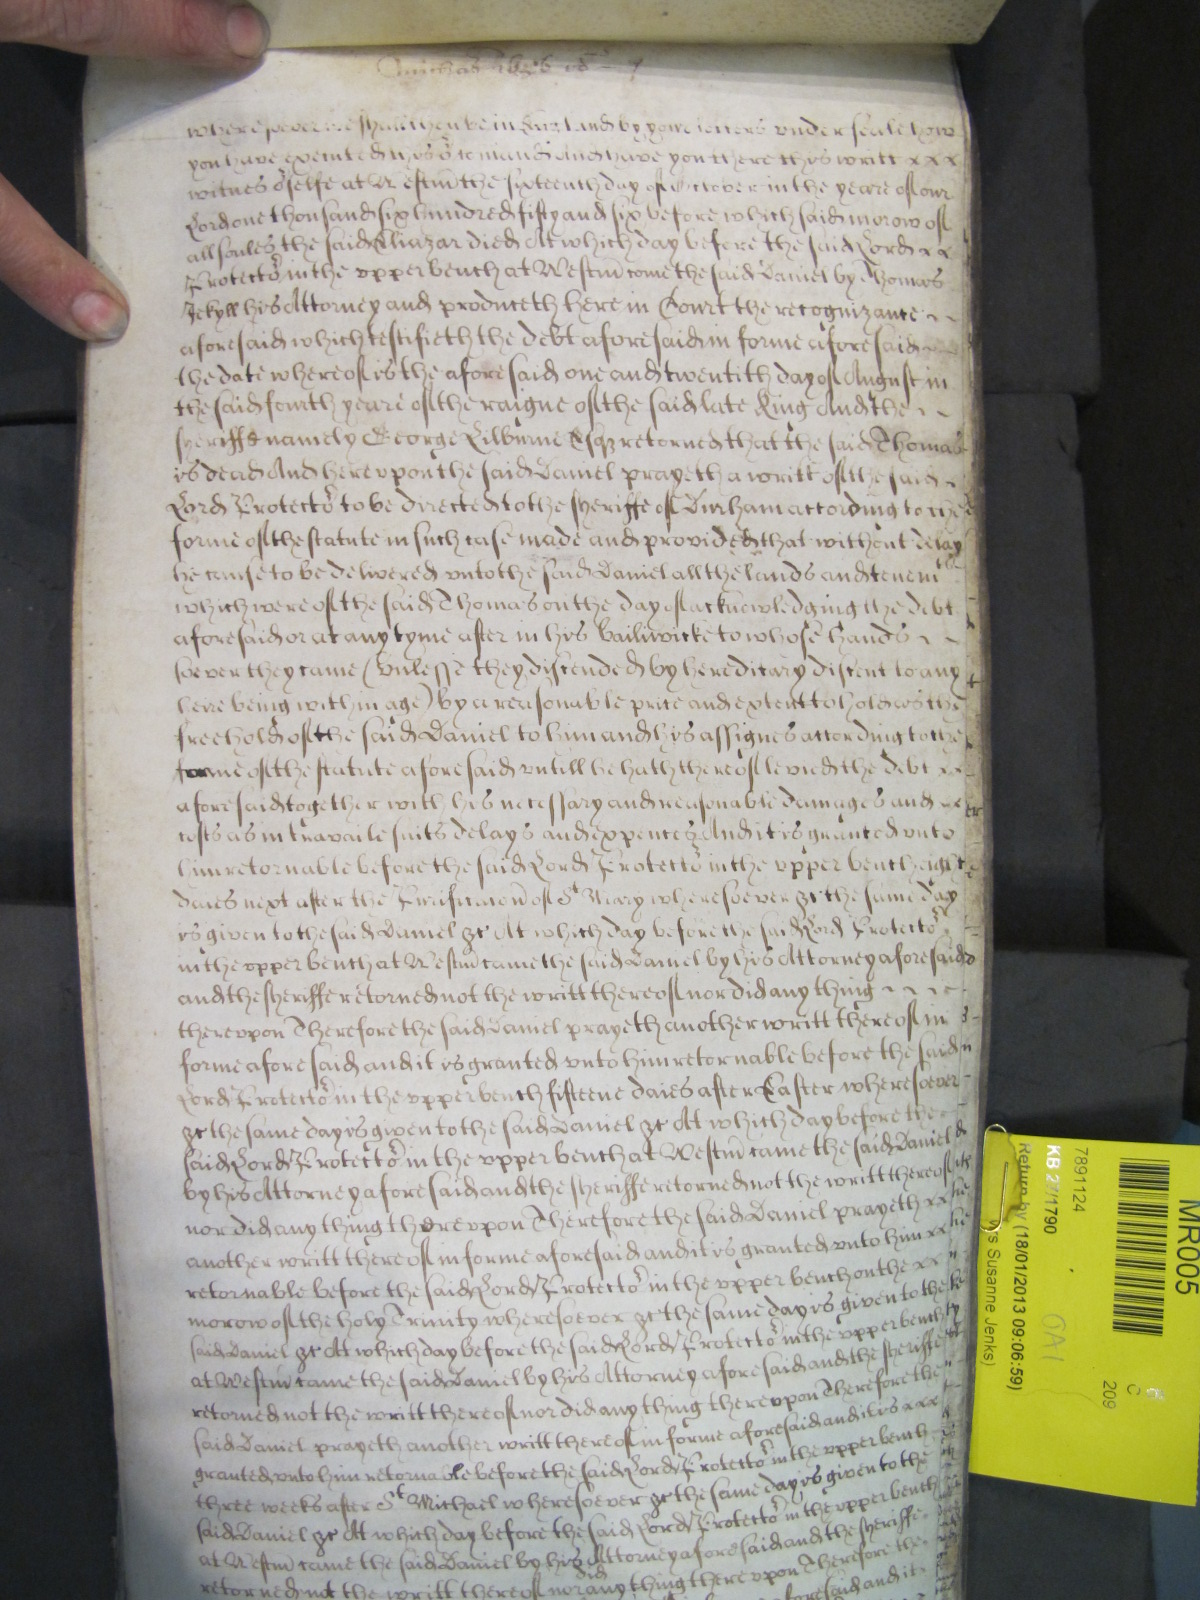 wheresoever he shall then be in England by your letters under seale how
you have executed this comand And have you there this writt x x x
witnes o~selfe at Westm~ the sixteenth day of October in the yeare of our
Lord one thousand six hundred fifty and six before which said morow of
all soules the said Eliazar died At which day before the said Lord x x
Protecto~ in the upper bench at Westm~ come the said Daniel by Thomas
Jekyll his Attorney and produceth here in Court the recognizance ~ ~
aforesaid which testifieth the debt aforesaid in forme aforesaid
the date whereof is the aforesaid one and twentith day of August in
the said fourth yeare of the raigne of the said late King And the ~ ~
sheriffe namely George Lilburne Esqr retorned that the said Thomas
is dead And hereupon the said Daniel prayeth a writt of the said ~
Lord Protecto~ to be directed to the sheriffe of Durham according to the
forme of the statute in such case made and provided that without delay
he cause to be delivered unto the said Daniel all the lands and tenemts
which were of the said Thomas on the day of acknowledging the debt
aforesaid or at any tyme after in his bailiwicke to whose hands ~ ~
soever they came (unlesse they discended by hereditary discent to any
heire being within age) by a reasonable price and extent to hold as the
freehold of the said Daniel to him and his assignes according to the
forme of the statute aforesaid untill he hath thereof levied the debt x x
aforesaid together with his necessary and reasonable damages and x x
costs as in travaile suits delays and expences And it is granted unto
him retornable before the said Lord Protecto~ in the upper bench eight
daies next after the Purificac~on of St Mary wheresoever &c the same day
is given to the said Daniel &c At which day before the said Lord Protecto~
in the upper bench at Westm~ came the said Daniel by his Attorney aforesaid
and the sheriffe retorned not the writt thereof nor did any thing ~ ~ ~ ~
thereupon Therefore the said Daniel prayeth another writt thereof in
forme aforesaid and it is granted unto him retornable before the said
Lord Protecto~ in the upper bench fifteene daies after Easter wheresoever
&c the same day is given to the said Daniel &c At which day before the
said Lord Protecto~ in the upper bench at Westm~ came the said Daniel
by his Attorney aforesaid and the sheriffe retorned not the writt thereof
nor did any thing thereupon Therefore the said Daniel prayeth x x
another writt thereof in forme aforesaid and it is granted unto him x x
retornable before the said Lord Protecto~ in the upper bench on the x x
morow of the holy Trinity wheresoever &c the same day is given to the
said Daniel &c At which day before the said Lord Protecto~ in the upper bench
at Westm~ came the said Daniel by his Attorney aforesaid and the sheriffe
retorned not the writt thereof nor did any thing thereupon Therefore the
said Daniel prayeth another writt thereof in forme aforesaid and it is x x x
granted unto him retornable before the said Lord Protecto~ in the upper bench
three weeks after St Michael wheresoever &c the same day is given to the
said Daniel &c At which day before the said Lord Protecto~ in the upper bench
at Westm~ came the said Daniel by his Attorney aforesaid and the sheriffe
did
retorned not the writt thereof nor any thing thereupon Therefore the
aforesaid and it
MR005
209
C
7891124
KB 27/1790
Return by (18/01/2013 09:06:59)
s Susanne Jenks)